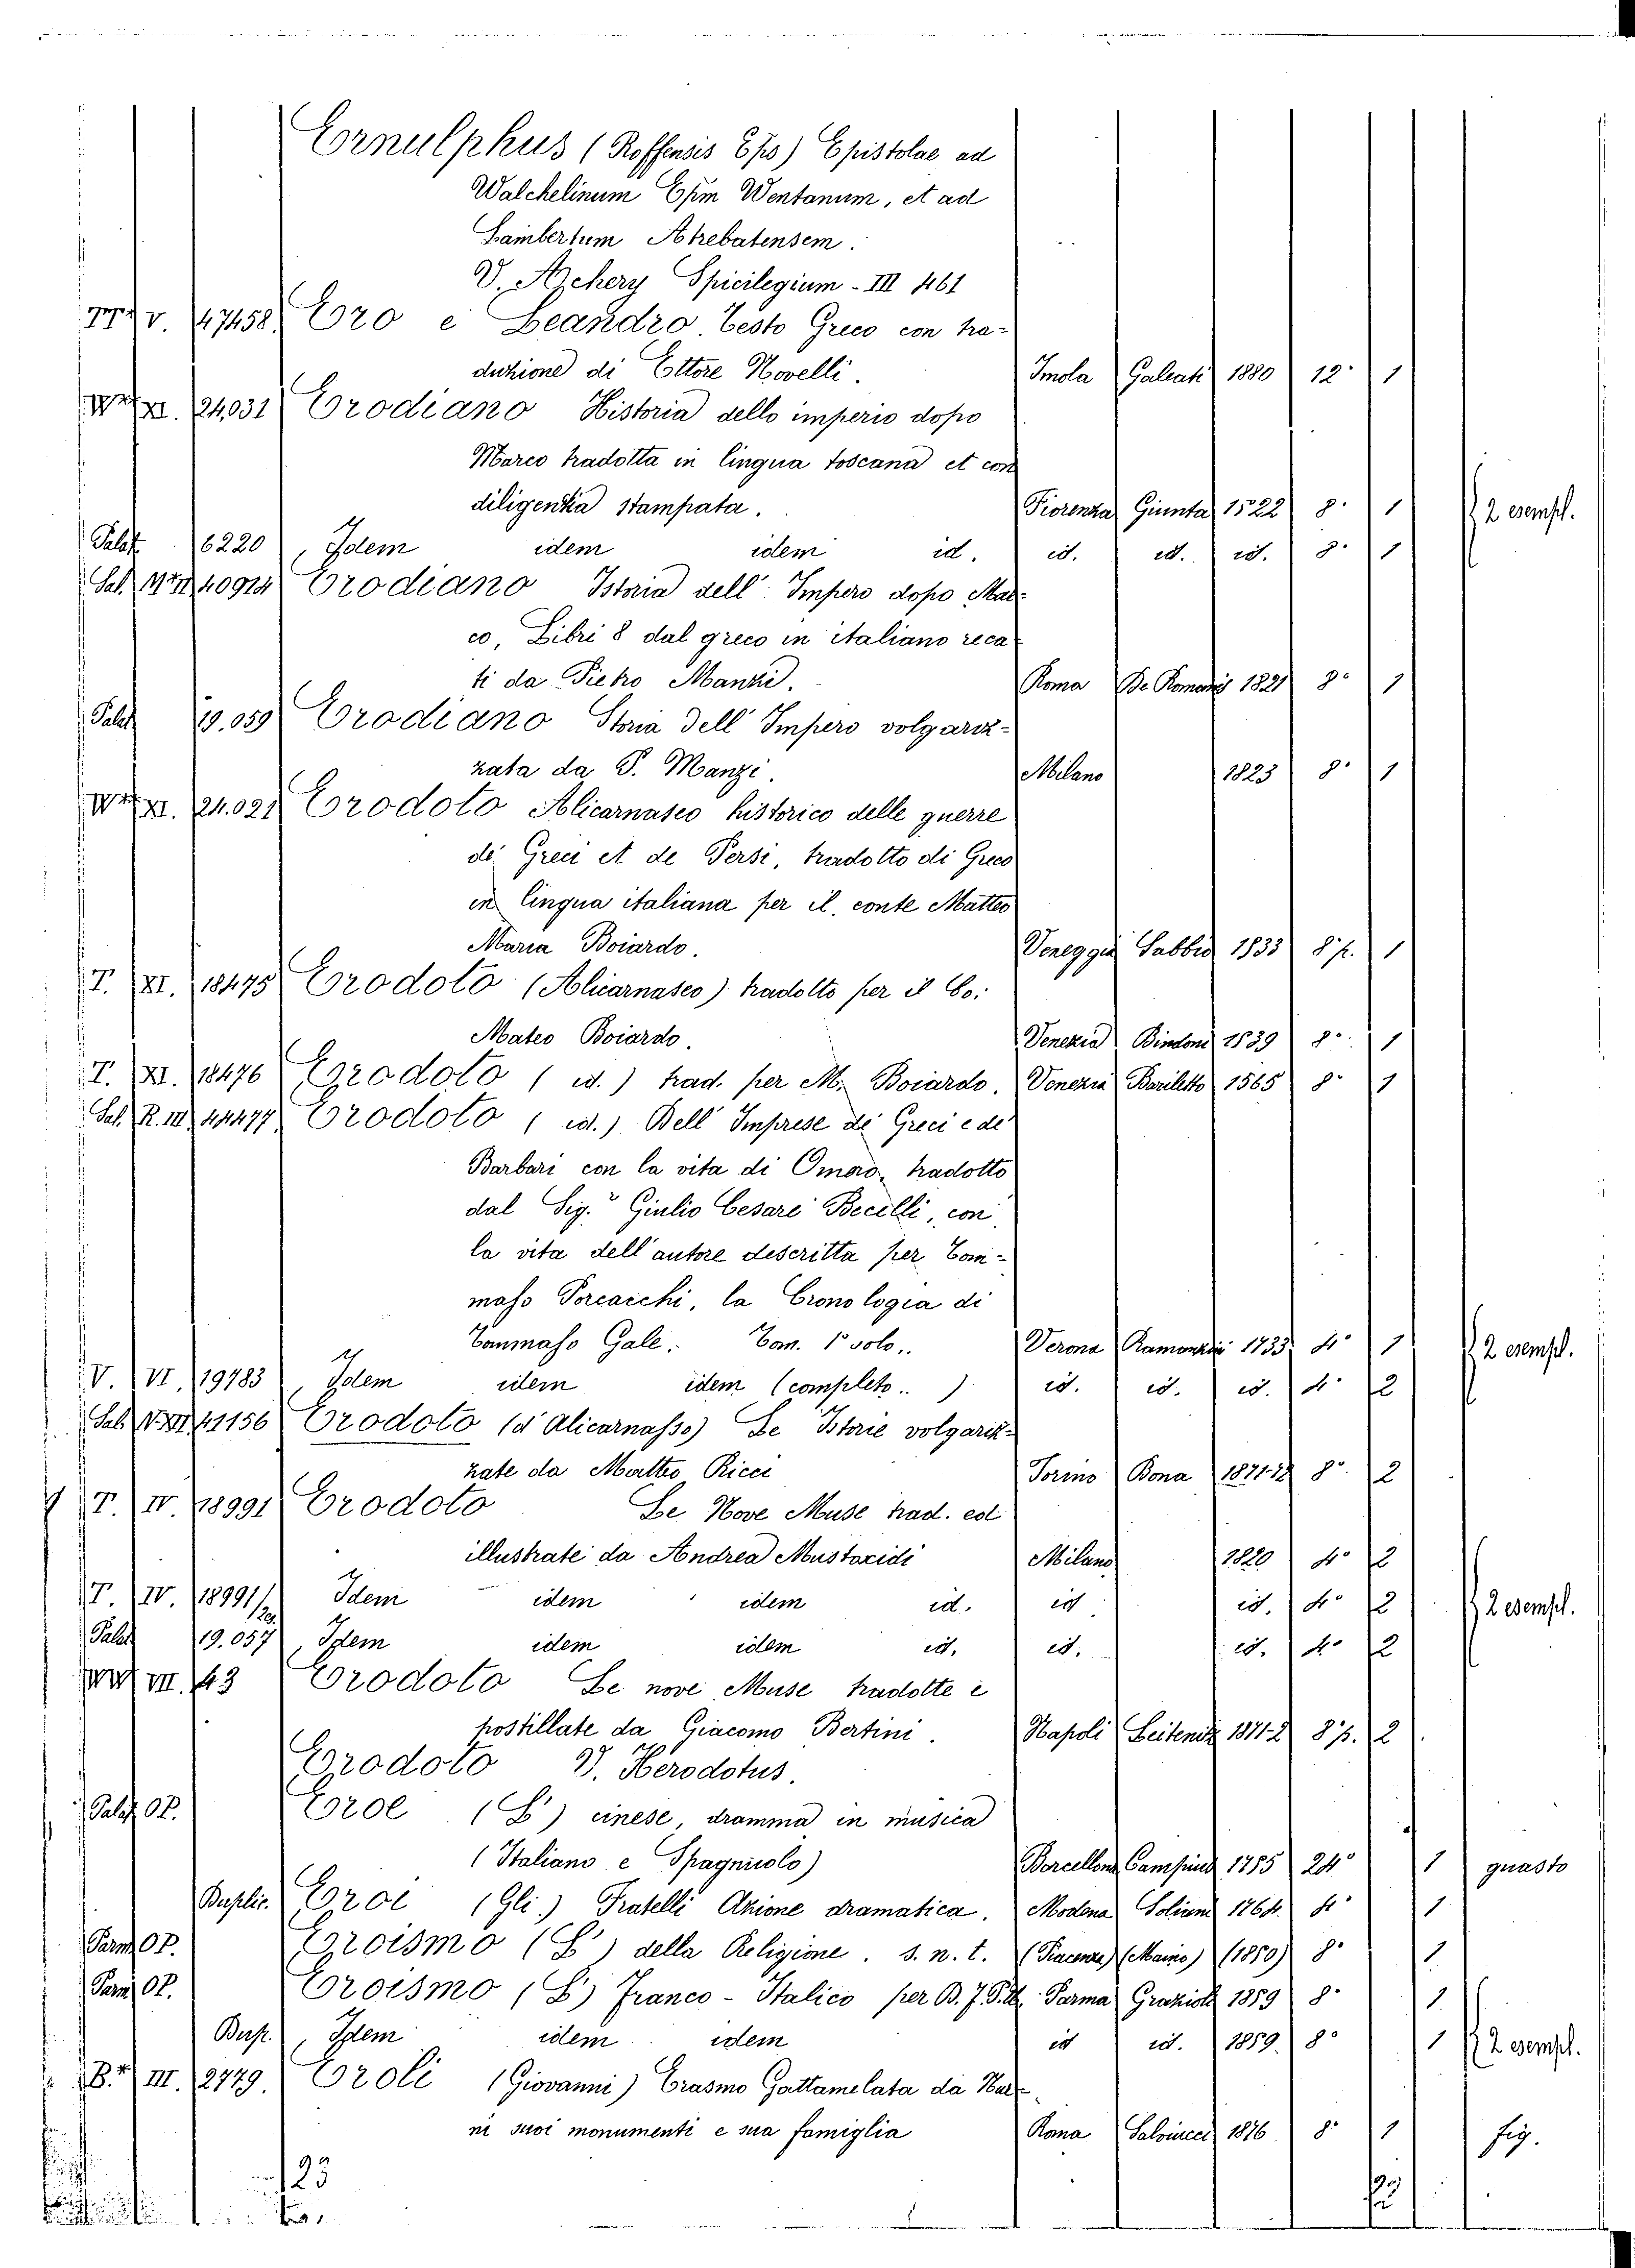 Ernulphus (Roffensis Eps) Epistolae ad
Walchelinum Epm Wentanum, et ad
Lambertum Atrebatensem.
V. Achery Spicilegium - III 461
V. 47458 Ero e Leandro. Testo Greco con tra-
duzione di Ettore Novelli. Imola Galeati 1880 12° 1
XI. 24031 Erodiano Historia dello imperio dopo
Marco tradotta in lingua toscana et con
diligentia stampata. Fiorenza Giunta 1522 8° 1 2 esempl.
Palat. 6220, Idem idem idem id. id. id. id. 8° 1
Sal. 40914 Erodiano Istoria dell' Impero dopo Mar-
co, Libri 8 dal greco in italiano reca-
ti da Pietro Manzi. Roma De Romanis 1821 8° 1
Palat 19.059 Erodiano Storia dell' Impero volgariz-
zata da P. Manzi. Milano 1823 8° 1
XI. 24.021 Erodoto Alicarnaseo historico delle guerre
de Greci et de Persi, tradotto di Greco
in lingua italiana per il conte Matteo
Maria Boiardo. Veneggia Sabbio 1533 8° p. 1
T. XI. 18475 Erodoto (Alicarnaseo) tradolto per il Co:
Mateo Boiardo. Venezia Bindoni 1539 8° 1
T. XI. 18476 Erodoto (id.) trad. per M. Boiardo. Venezia Bariletto 1565 8° 1
Sal. R. III 44477 Erodoto (id.) Dell' Imprese de' Greci e de'
Barbari con la vita di Omero, tradotto
dal Sig.r Giulio Cesare Becelli, con
la vita dell'autore descritta per Tom-
maso Porcacchi, la Cronologia di
Tommaso Gale. Tom. 1° solo. Verona Ramanzini 1733 4° 1 2 esempl.
V. VI. 19783, Idem idem idem (completo..) id. id. id. 4° 2
Sal. 41156 Erodoto (d'Alicarnasso) Le Istorie volgariz-
zate da Matteo Ricci Torino Bona 1871-72 8° 2
T. IV. 18991 Erodoto Le Nove Muse trad. ed
illustrate da Andrea Mustoxidi Milano 1820 4° 2
T. IV. 18991/ Idem idem idem id. id id. 4° 2 2 esempl.
Palat 19.057, Idem idem idem id. id. id. 4° 2
VII. 43 Erodoto Le nove Muse tradotte e
postillate da Giacomo Bertini. Napoli 1871-2 8° p. 2
Erodoto V. Herodotus.
Palat OP. Eroe (L') cinese, dramma in musica
(Italiano e Spagnuolo) Barcellona Campins 1755 24° 1 guasto
Duplic. Eroi (Gli) Fratelli Azione dramatica. Modena Soliani 1764 4° 1
Parm OP. Eroismo (L') della Religione. s. n. t. (Piacenza) (Maino) (1850) 8° 1
Parm OP. Eroismo (L') Franco-Italico per Parma Grazioli 1859 8° 1
Dup., Idem idem idem id id. 1859. 8° 1 2 esempl.
B.* III. 2779 Eroli (Giovanni) Erasmo Gattamelata da Nar-
ni suoi monumenti e sua famiglia Roma Salviucci 1876 8° 1 fig.
123